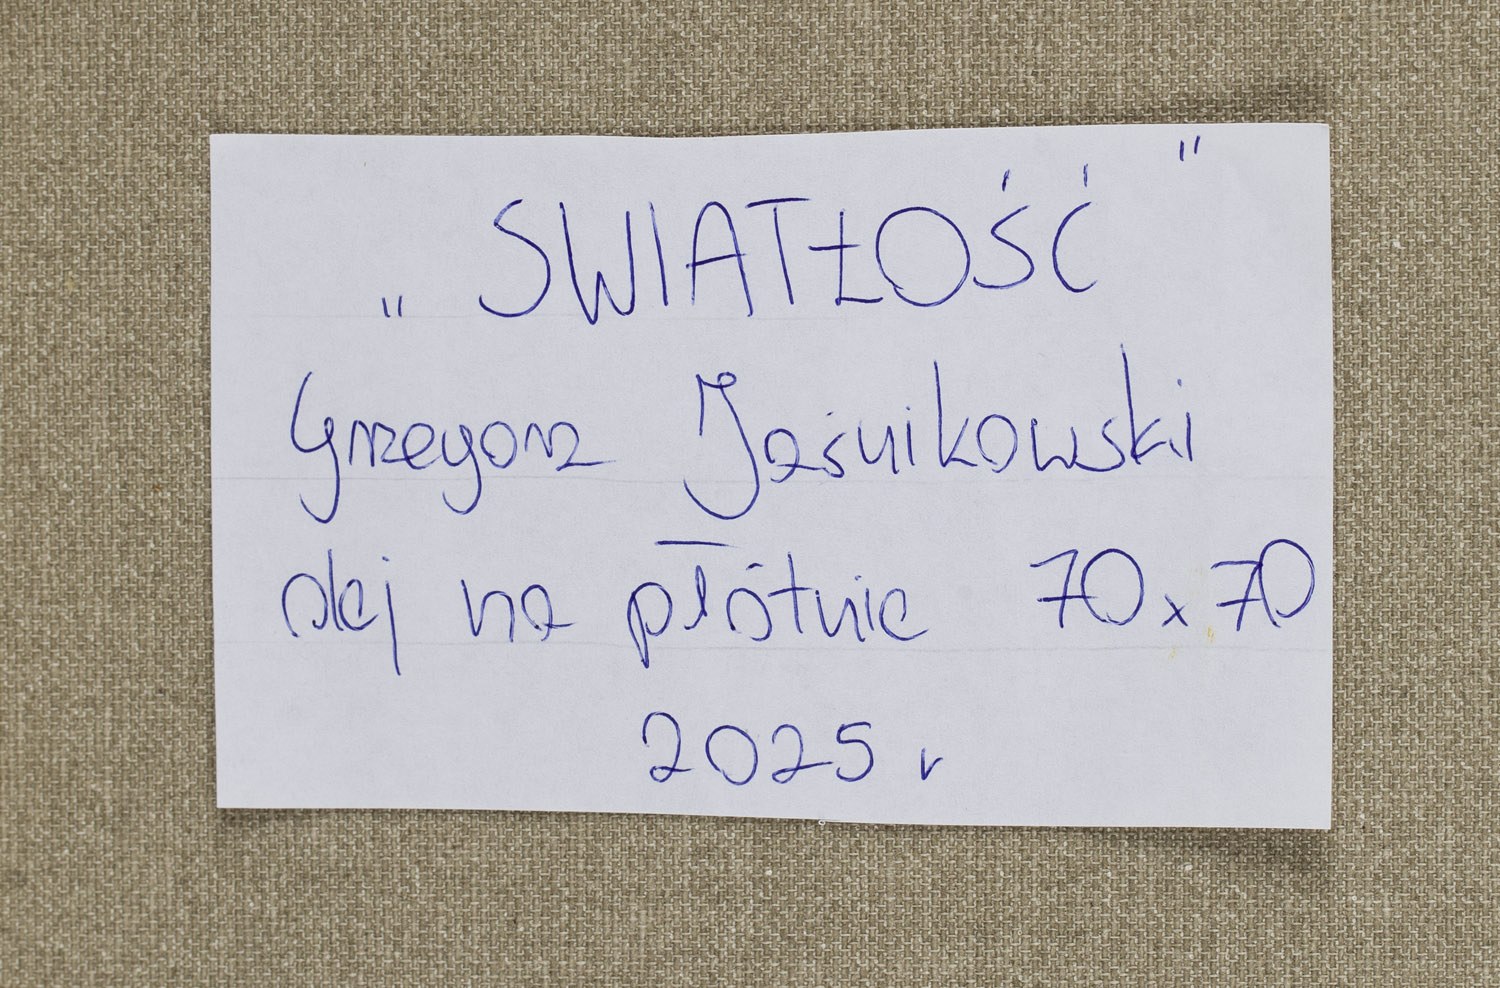 „SWIATŁOŚĆ"
Grzegorz Jaśnikowski
olej na płótnie 70x70
2025 r